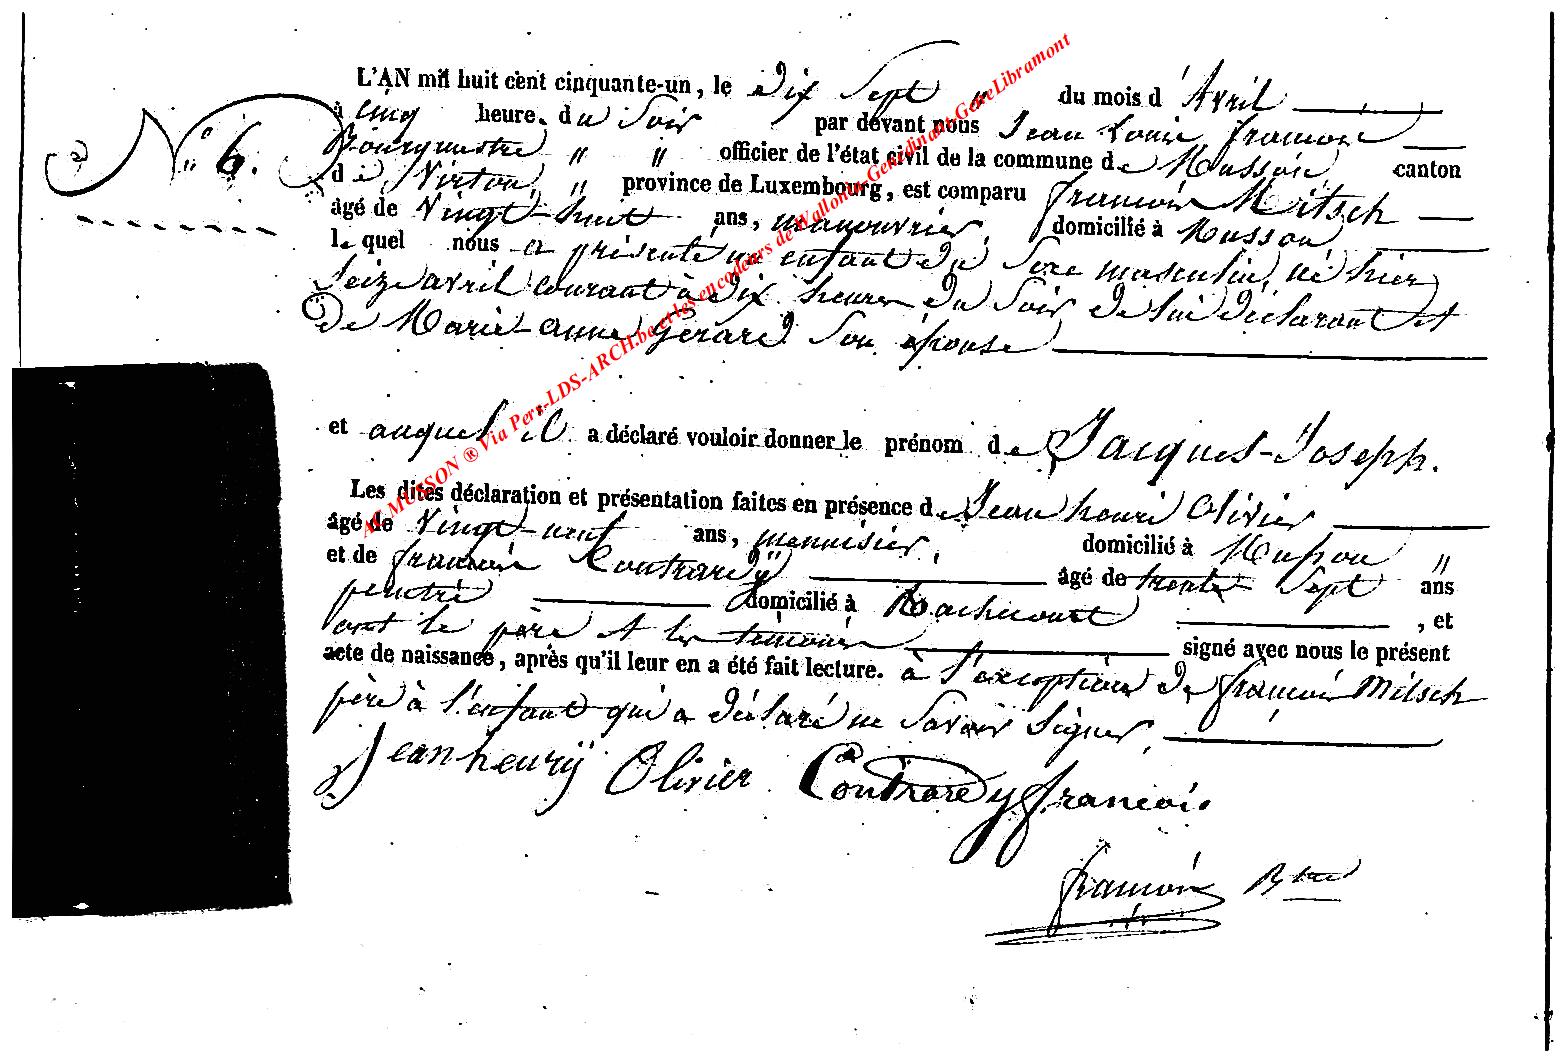 L'AN mil huit cent cinquante-un, le dix sept " du mois d'Avril
N° 6.
à cinq heures du soir par devant nous Jean Louis françois
Bourguestre " " officier de l'état civil de la commune de Musson, canton
de Virton, " province de Luxembourg, est comparu françois Mitsch
âgé de vingt-huit ans, manouvrier, domicilié à Musson
lequel nous a présenté un enfant du sexe masculin, né hier
seize avril courant à dix heures du soir de lui déclarant et
de Marie-anne Gérard son épouse
et auquel il a déclaré vouloir donner le prénom de Jacques-Joseph.
Les dites déclaration et présentation faites en présence de Jean henri Olivier
âgé de vingt-neuf ans, menuisier, domicilié à Musson "
et de françois Contrardÿ âgé de trente sept ans
peintre domicilié à Rachecourt , et
ont le père et les témoins signé avec nous le présent
acte de naissance, après qu'il leur en a été fait lecture. à l'exception de françois Mitsch
père à l'enfant qui a déclaré ne savoir signer.
Jean henrÿ Olivier Contrardy francois.
françois Btre
AC MUSSON ® Via Pers-LDS-ARCH.be et les encodeurs de Wallonia-Genedinant-GeneLibramont